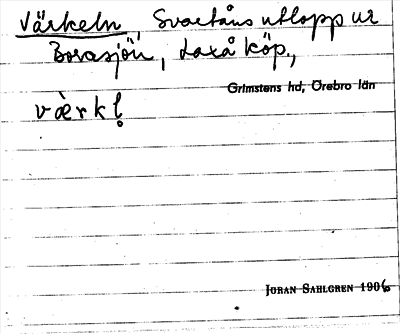 Värkeln, Svartåns utlopp ur
Borasjön, Laxå köp.,
Grimstens hd, Örebro län
värkl̥
JÖRAN SAHLGREN 1906